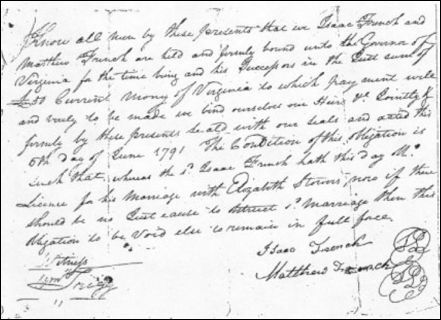 Know all men by these presents that we Isaac French and
Matthew French are held and firmly bound unto the Govenor of
Virginia for the time being and his Successors in the Just sum of
£50 Current money of Virginia to which payment well
and truly to be made we bind ourselves our Heirs &c Jointly &
firmly by these presents Seald with our Seals and dated this
6th day of June 1791 The Condition of this obligation is
such that, whereas the sd. Isaac French hath this day
License for his Marriage with Elizabeth now if there
should be no Just cause to obstruct sd. marriage then this
Obligation to be Void else to remain in full force
Isaac French
Matthew French
Witness
Trigg